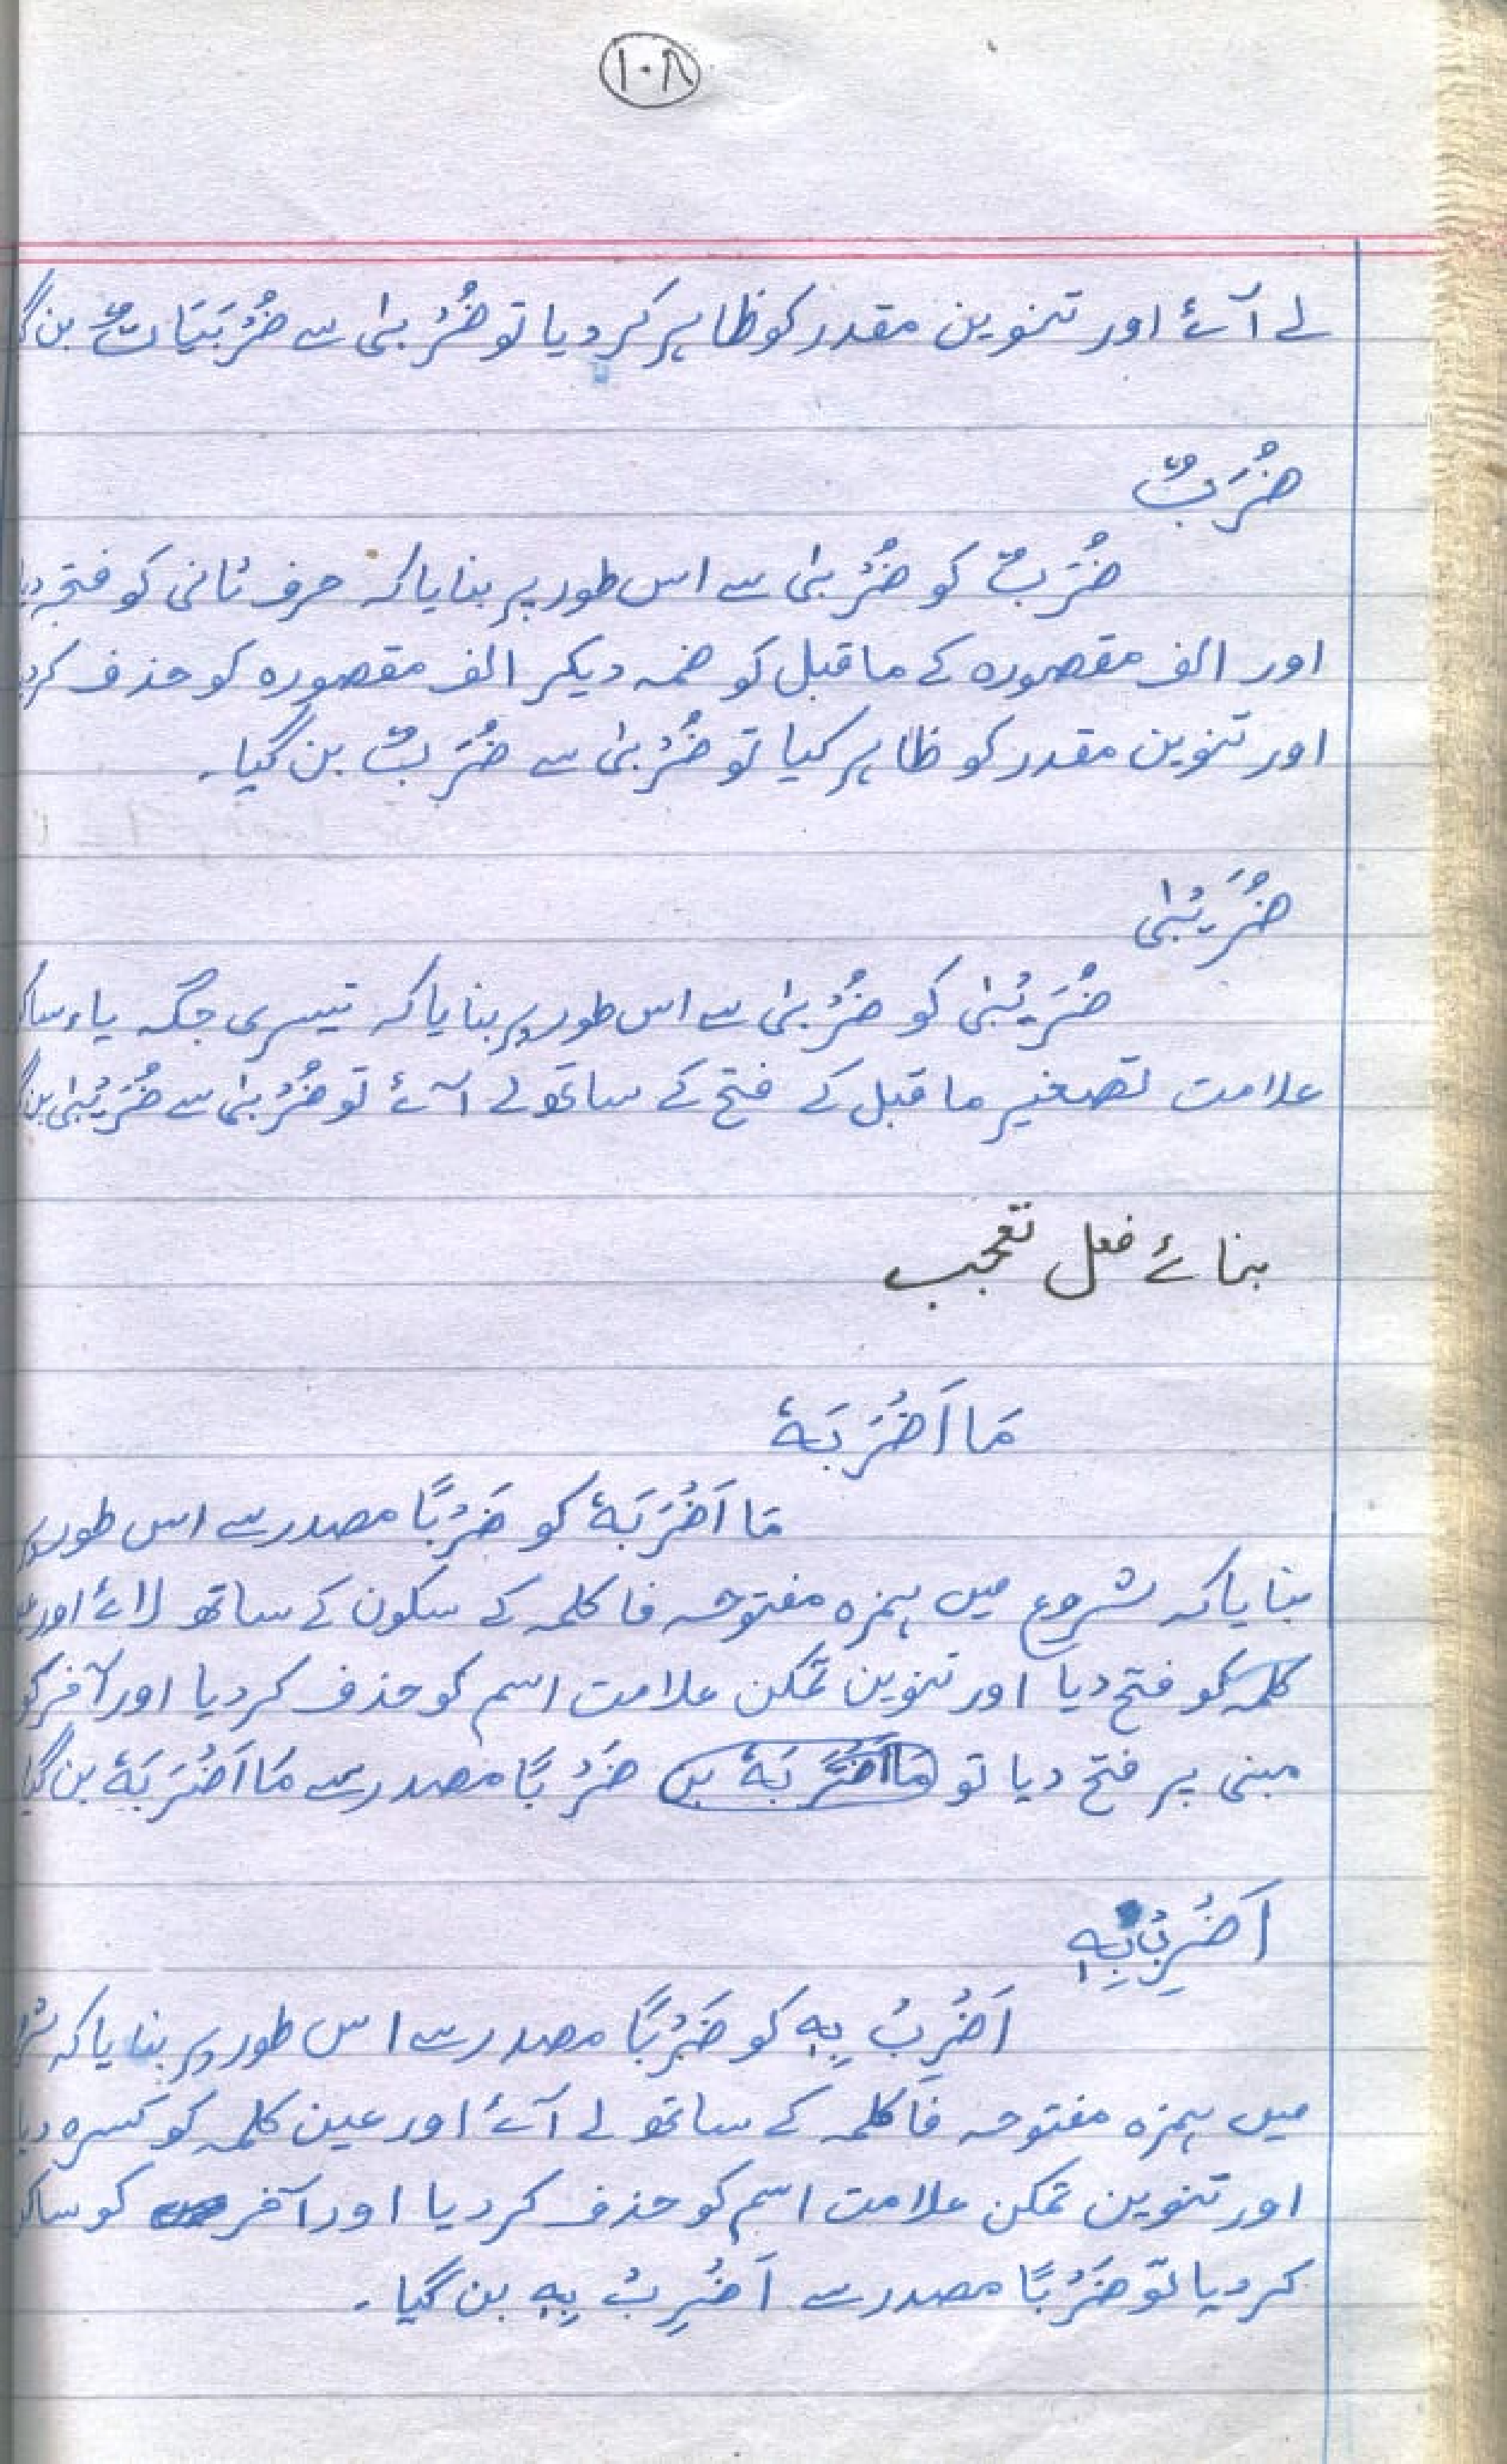 ١٠٨
لے آئے اور تنوین مقدر کو ظاہر کر دیا تو ضُرْبٰی سے ضُرْبَیَاتٌ بن
ضُرَبٌ
ضُرَبٌ کو ضُرْبٰی سے اس طور پر بنایا کہ حرف ثانی کو فتحہ دیا
اور الف مقصورہ کے ماقبل کو ضمہ دیکر الف مقصورہ کو حذف کر
اور تنوین مقدر کو ظاہر کیا تو ضُرْبٰی سے ضُرَبٌ بن گیا۔
ضُرَیْبٰی
ضُرَیْبٰی کو ضُرْبٰی سے اس طور پر بنایا کہ تیسری جگہ یاء
علامت تصغیر ماقبل کے فتح کے ساتھ لے آئے تو ضُرْبٰی سے ضُرَیْبٰی بن
بنائے فعل تعجب
مَا اَضْرَبَہٗ
مَا اَضْرَبَہٗ کو ضَرْبًا مصدر سے اس طور پر
بنایا کہ شروع میں ہمزہ مفتوحہ فا کلمہ کے سکون کے ساتھ لائے اور
کلمہ کو فتح دیا اور تنوین تمکن علامت اسم کو حذف کر دیا اور آخر کو
مبنی بر فتح دیا تو مَا اَضْرَبَہٗ بن ضَرْبًا مصدر سے مَا اَضْرَبَہٗ بن گیا
اَضْرِبْ بِہٖ
اَضْرِبْ بِہٖ کو ضَرْبًا مصدر سے اس طور پر بنایا کہ
میں ہمزہ مفتوحہ فا کلمہ کے ساتھ لے آئے اور عین کلمہ کو کسرہ دیا
اور تنوین تمکن علامت اسم کو حذف کر دیا اور آخر کو
کر دیا تو ضَرْبًا مصدر سے اَضْرِبْ بِہٖ بن گیا۔